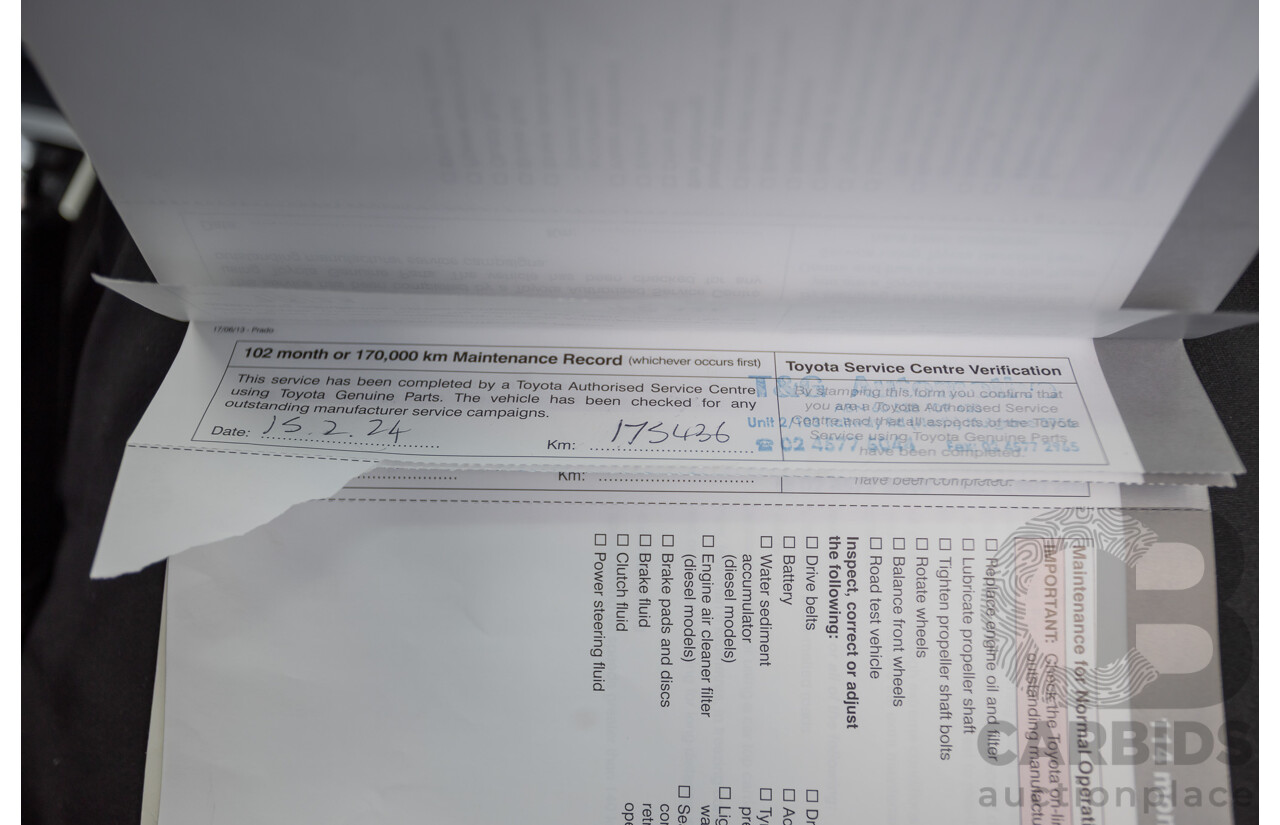 17/06/13 - Prado
102 month or 170,000 km Maintenance Record (whichever occurs first)
This service has been completed by a Toyota Authorised Service Centre
using Toyota Genuine Parts. The vehicle has been checked for any
outstanding manufacturer service campaigns.
Date: 15.2.24
Km: 175436
Toyota Service Centre Verification
By stamping this form you confirm that
you are a Toyota Authorised Service
Centre and that all aspects of the Toyota
Service using Toyota Genuine Parts
have been completed.
T&G
Unit 2/
02 4577
Km:
have been completed.
Maintenance for Normal Operati
IMPORTANT: Check the Toyota on-li
outstanding manufactu
Replace engine oil and filter
Lubricate propeller shaft
Tighten propeller shaft bolts
Rotate wheels
Balance front wheels
Road test vehicle
Inspect, correct or adjust
the following:
Drive belts
Battery
Water sediment
accumulator
(diesel models)
Engine air cleaner filter
(diesel models)
Brake pads and discs
Brake fluid
Clutch fluid
Power steering fluid
CARBIDS
auctionplace